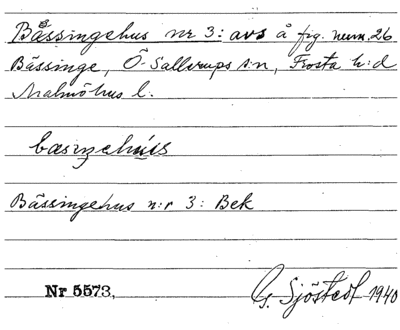 Bässingehus nr 3: avs å frg. num 26
Bässinge, Ö. Sallerups s:n, Frosta h:d
Malmöhus l.
bæsiʒehúis
Bässingehus n:r 3: Bek
Nr 5573, G. Sjöstedt 1940